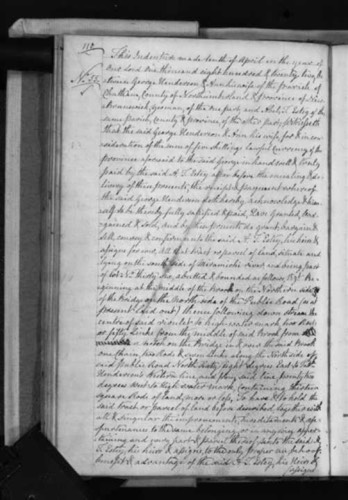 112
This Indenture made tenth of April in the year of
our Lord one thousand eight hundred & twenty five, Be
tween George Henderson & Ann his wife of the parish of
Chatham, County of Northumberland & Province of New
Brunswick, Yeoman, of the one part, and A. T. Estey of the
same parish, County & province of the other part, Witnesseth
that the said George Henderson & Ann his wife for & in con
sideration of the sum of five shillings lawful currency of the
province aforesaid to the said George in hand well & truly
paid by the said A. T. Estey at or before the ensealing & de
livery of these presents, the receipt & payment whereof
the said George Henderson doth hereby acknowledge & him
self to be thereby fully satisfied & paid, Have Granted Bar
gained & Sold, and by these presents do grant bargain &
sell convey & confirm unto the said A. T. Estey, his heirs &
assigns for ever, All that tract or parcel of land, situate and
lying on the south side of Miramichi river and being part
of lot No. Thirty Six, abutted & bounded as follows, Viz. Be
ginning at the middle of the Brook, on the Northern side
of the Bridge on the North side of the Public Road (as at
present laid out) thence following down stream the
centre of said rivulet to high water mark
or fifty links from the middle of said Brook from
a notch on the Bridge
one chain, five Rods & seven links along the North side of
said Public Road North eighty eight degrees East
Hendersons
degrees West to High water mark, containing thirteen
square Rods of land, more or less, To have & to hold the
said tract or parcel of land before described, together with
all & singular the improvements, hereditaments & ap
purtenances to the same belonging, or in anywise apper
taining and every part & parcel thereof unto the said A.
T. Estey, his heirs & assigns, to the only proper use, behoof
benefit & advantage of the said A. T. Estey, his heirs &
assigns